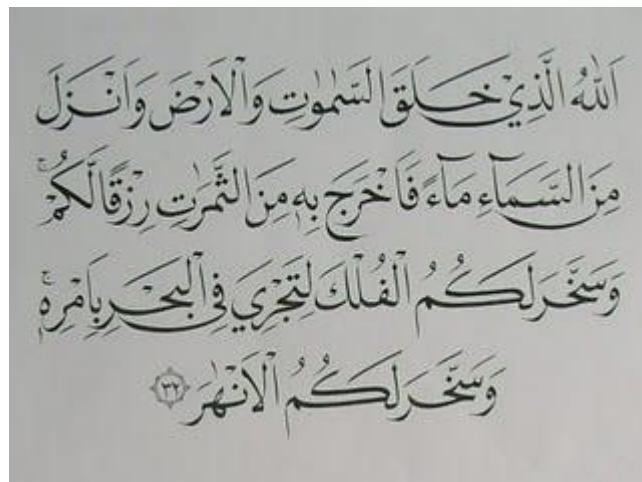 اَللّٰهُ الَّذِيْ خَلَقَ السَّمٰوٰتِ وَالْاَرْضَ وَاَنْزَلَ
مِنَ السَّمَاۤءِ مَاۤءً فَاَخْرَجَ بِهٖ مِنَ الثَّمَرٰتِ رِزْقًا لَّكُمْ ۚ
وَسَخَّرَ لَكُمُ الْفُلْكَ لِتَجْرِيَ فِى الْبَحْرِ بِاَمْرِهٖ ۚ
وَسَخَّرَ لَكُمُ الْاَنْهٰرَ ۝٣٢